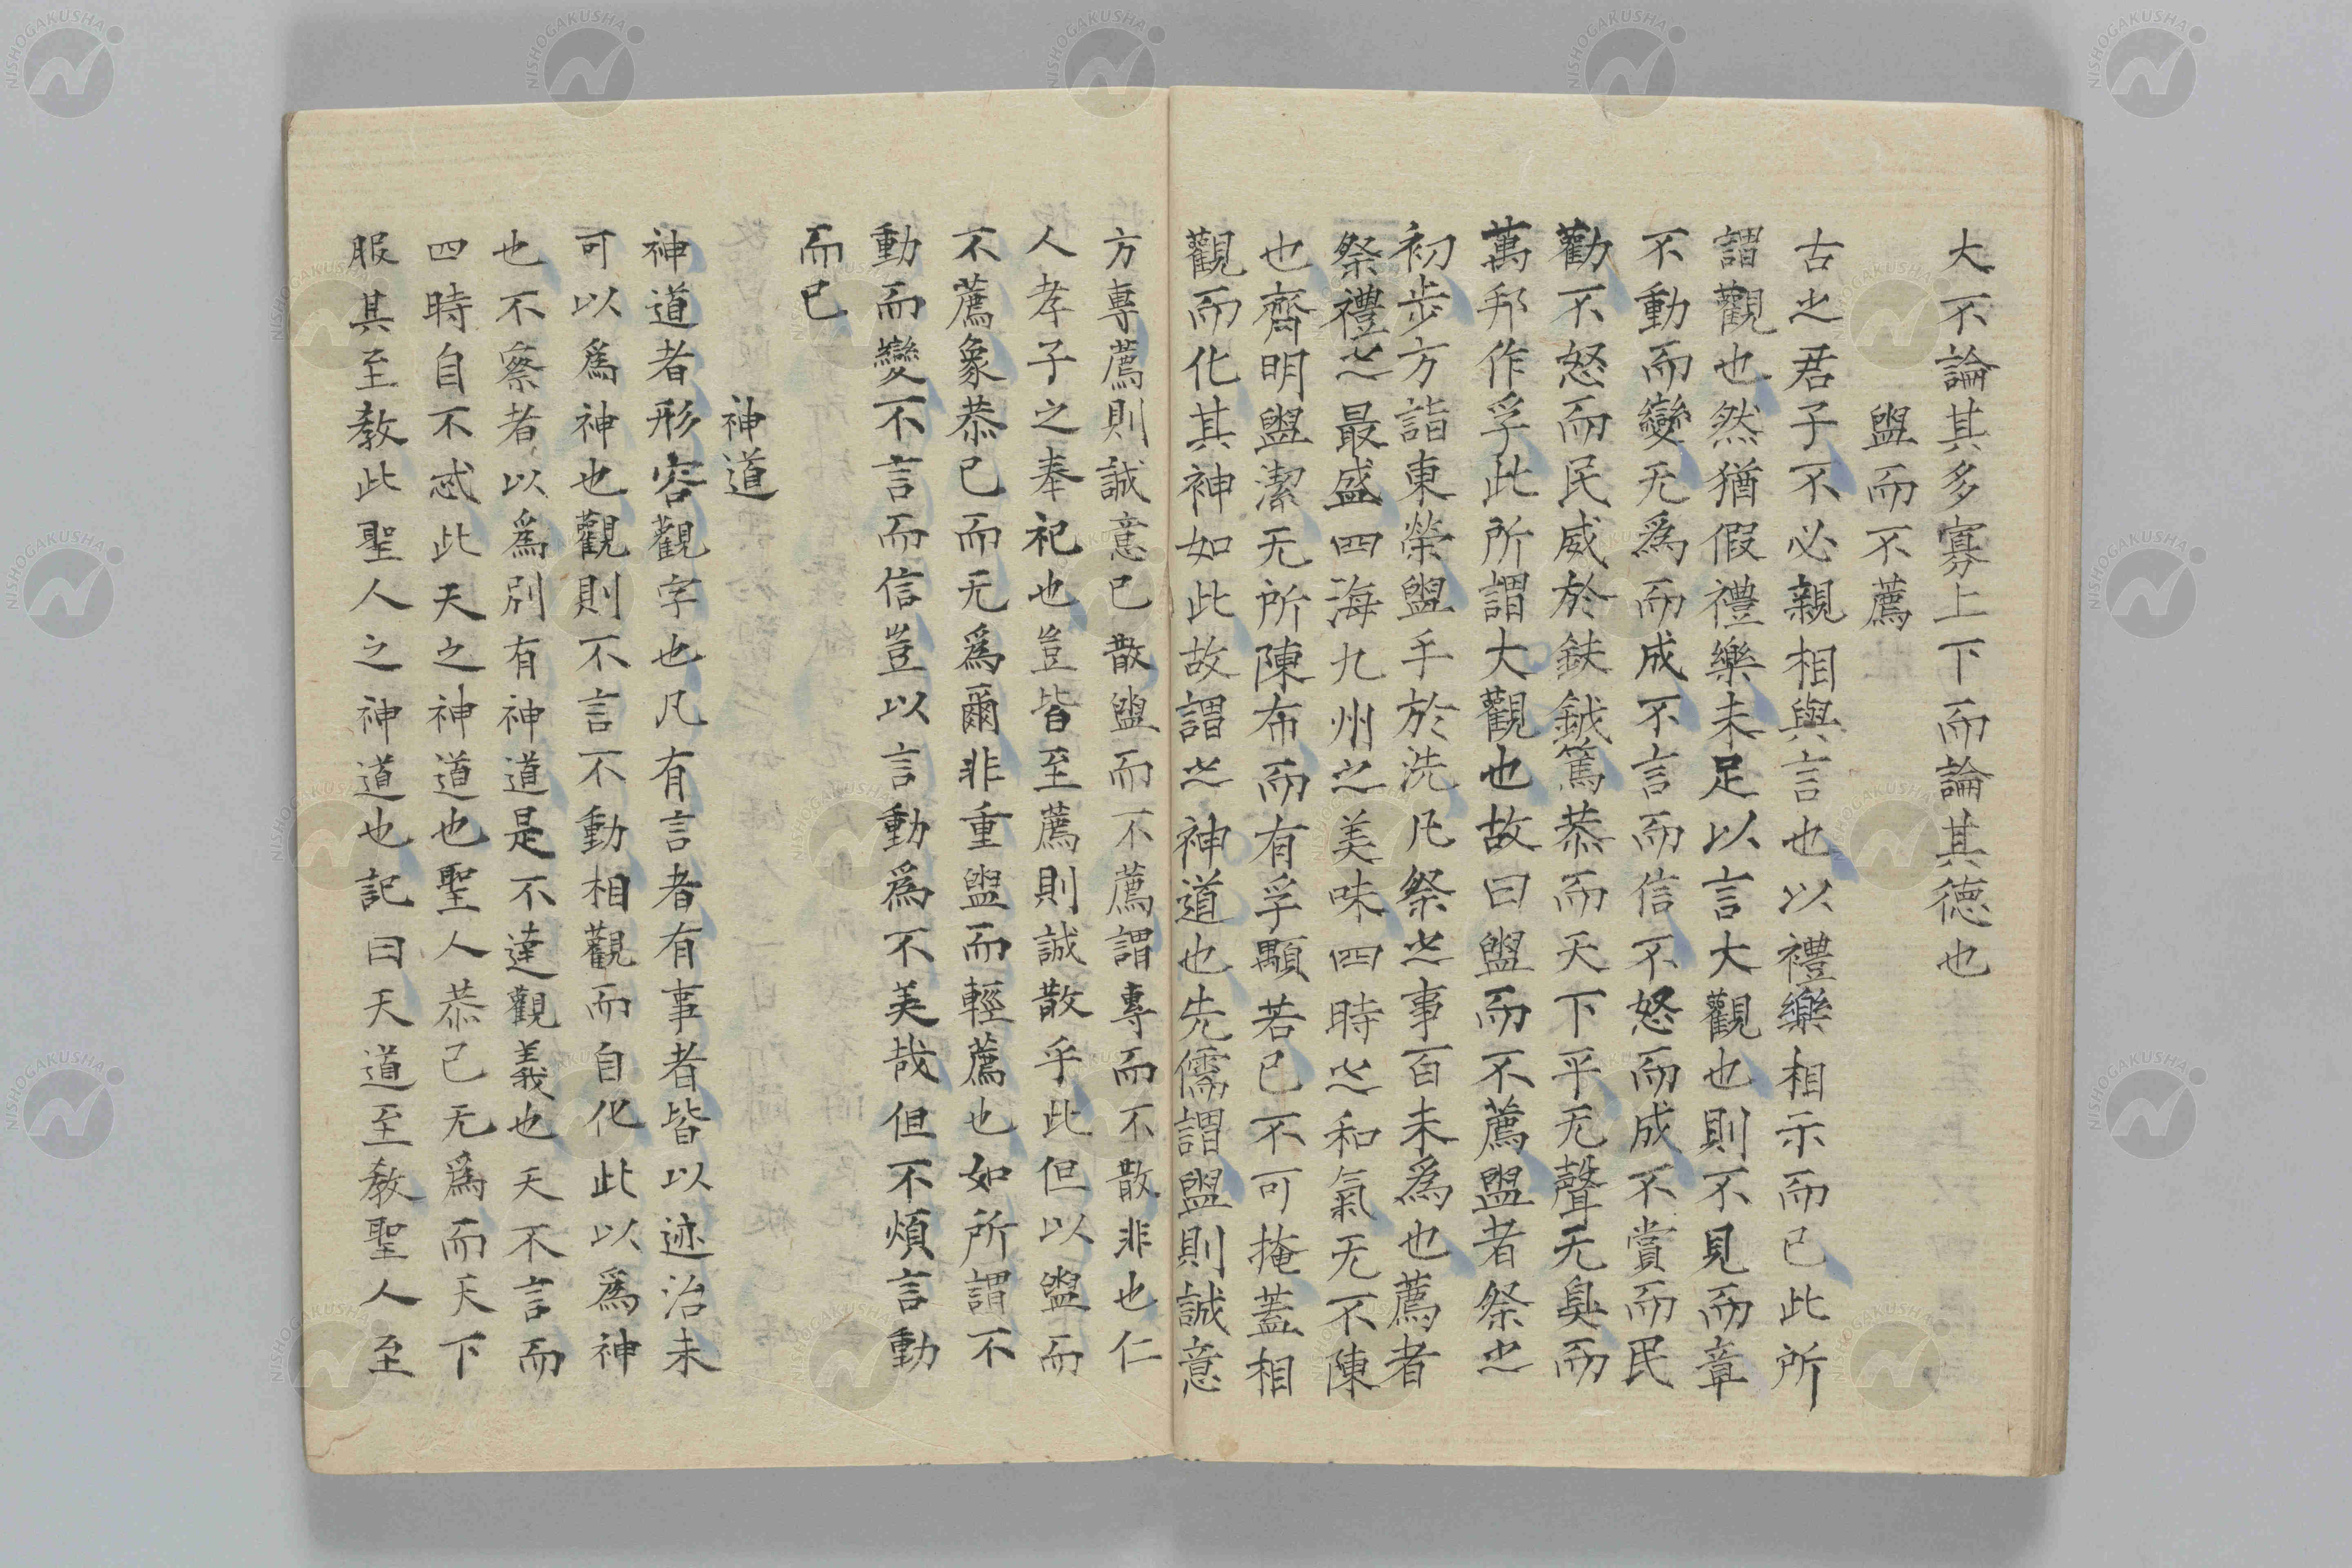 大不論其多寡上下而論其德也
盥而不薦
古之君子不必親相與言也以禮樂相示而已此所
謂觀也然猶假禮樂未足以言大觀也則不見而章
不動而變无爲而成不言而信不怒而成不賞而民
勸不怒而民威於鈇鉞篤恭而天下平无聲无臭而
萬邦作孚此所謂大觀也故曰盥而不薦盥者祭之
初步方詣東榮盥手於洗凡祭之事百未爲也薦者
祭禮之最盛四海九州之美味四時之和氣无不陳
也齊明盥潔无所陳布而有孚顒若已不可掩蓋相
觀而化其神如此故謂之神道也先儒謂盥則誠意
方專薦則誠意已散盥而不薦謂專而不散非也仁
人孝子之奉祀也豈皆至薦則誠散乎此但以盥而
不薦象恭己而无爲爾非重盥而輕薦也如所謂不
動而變不言而信豈以言動爲不美哉但不煩言動
而已
神道
神道者形容觀字也凡有言者有事者皆以迹治未
可以爲神也觀則不言不動相觀而自化此以爲神
也不察者以爲別有神道是不達觀義也天不言而
四時自不忒此天之神道也聖人恭己无爲而天下
服其至教此聖人之神道也記曰天道至教聖人至
NISHOGAKUSHA